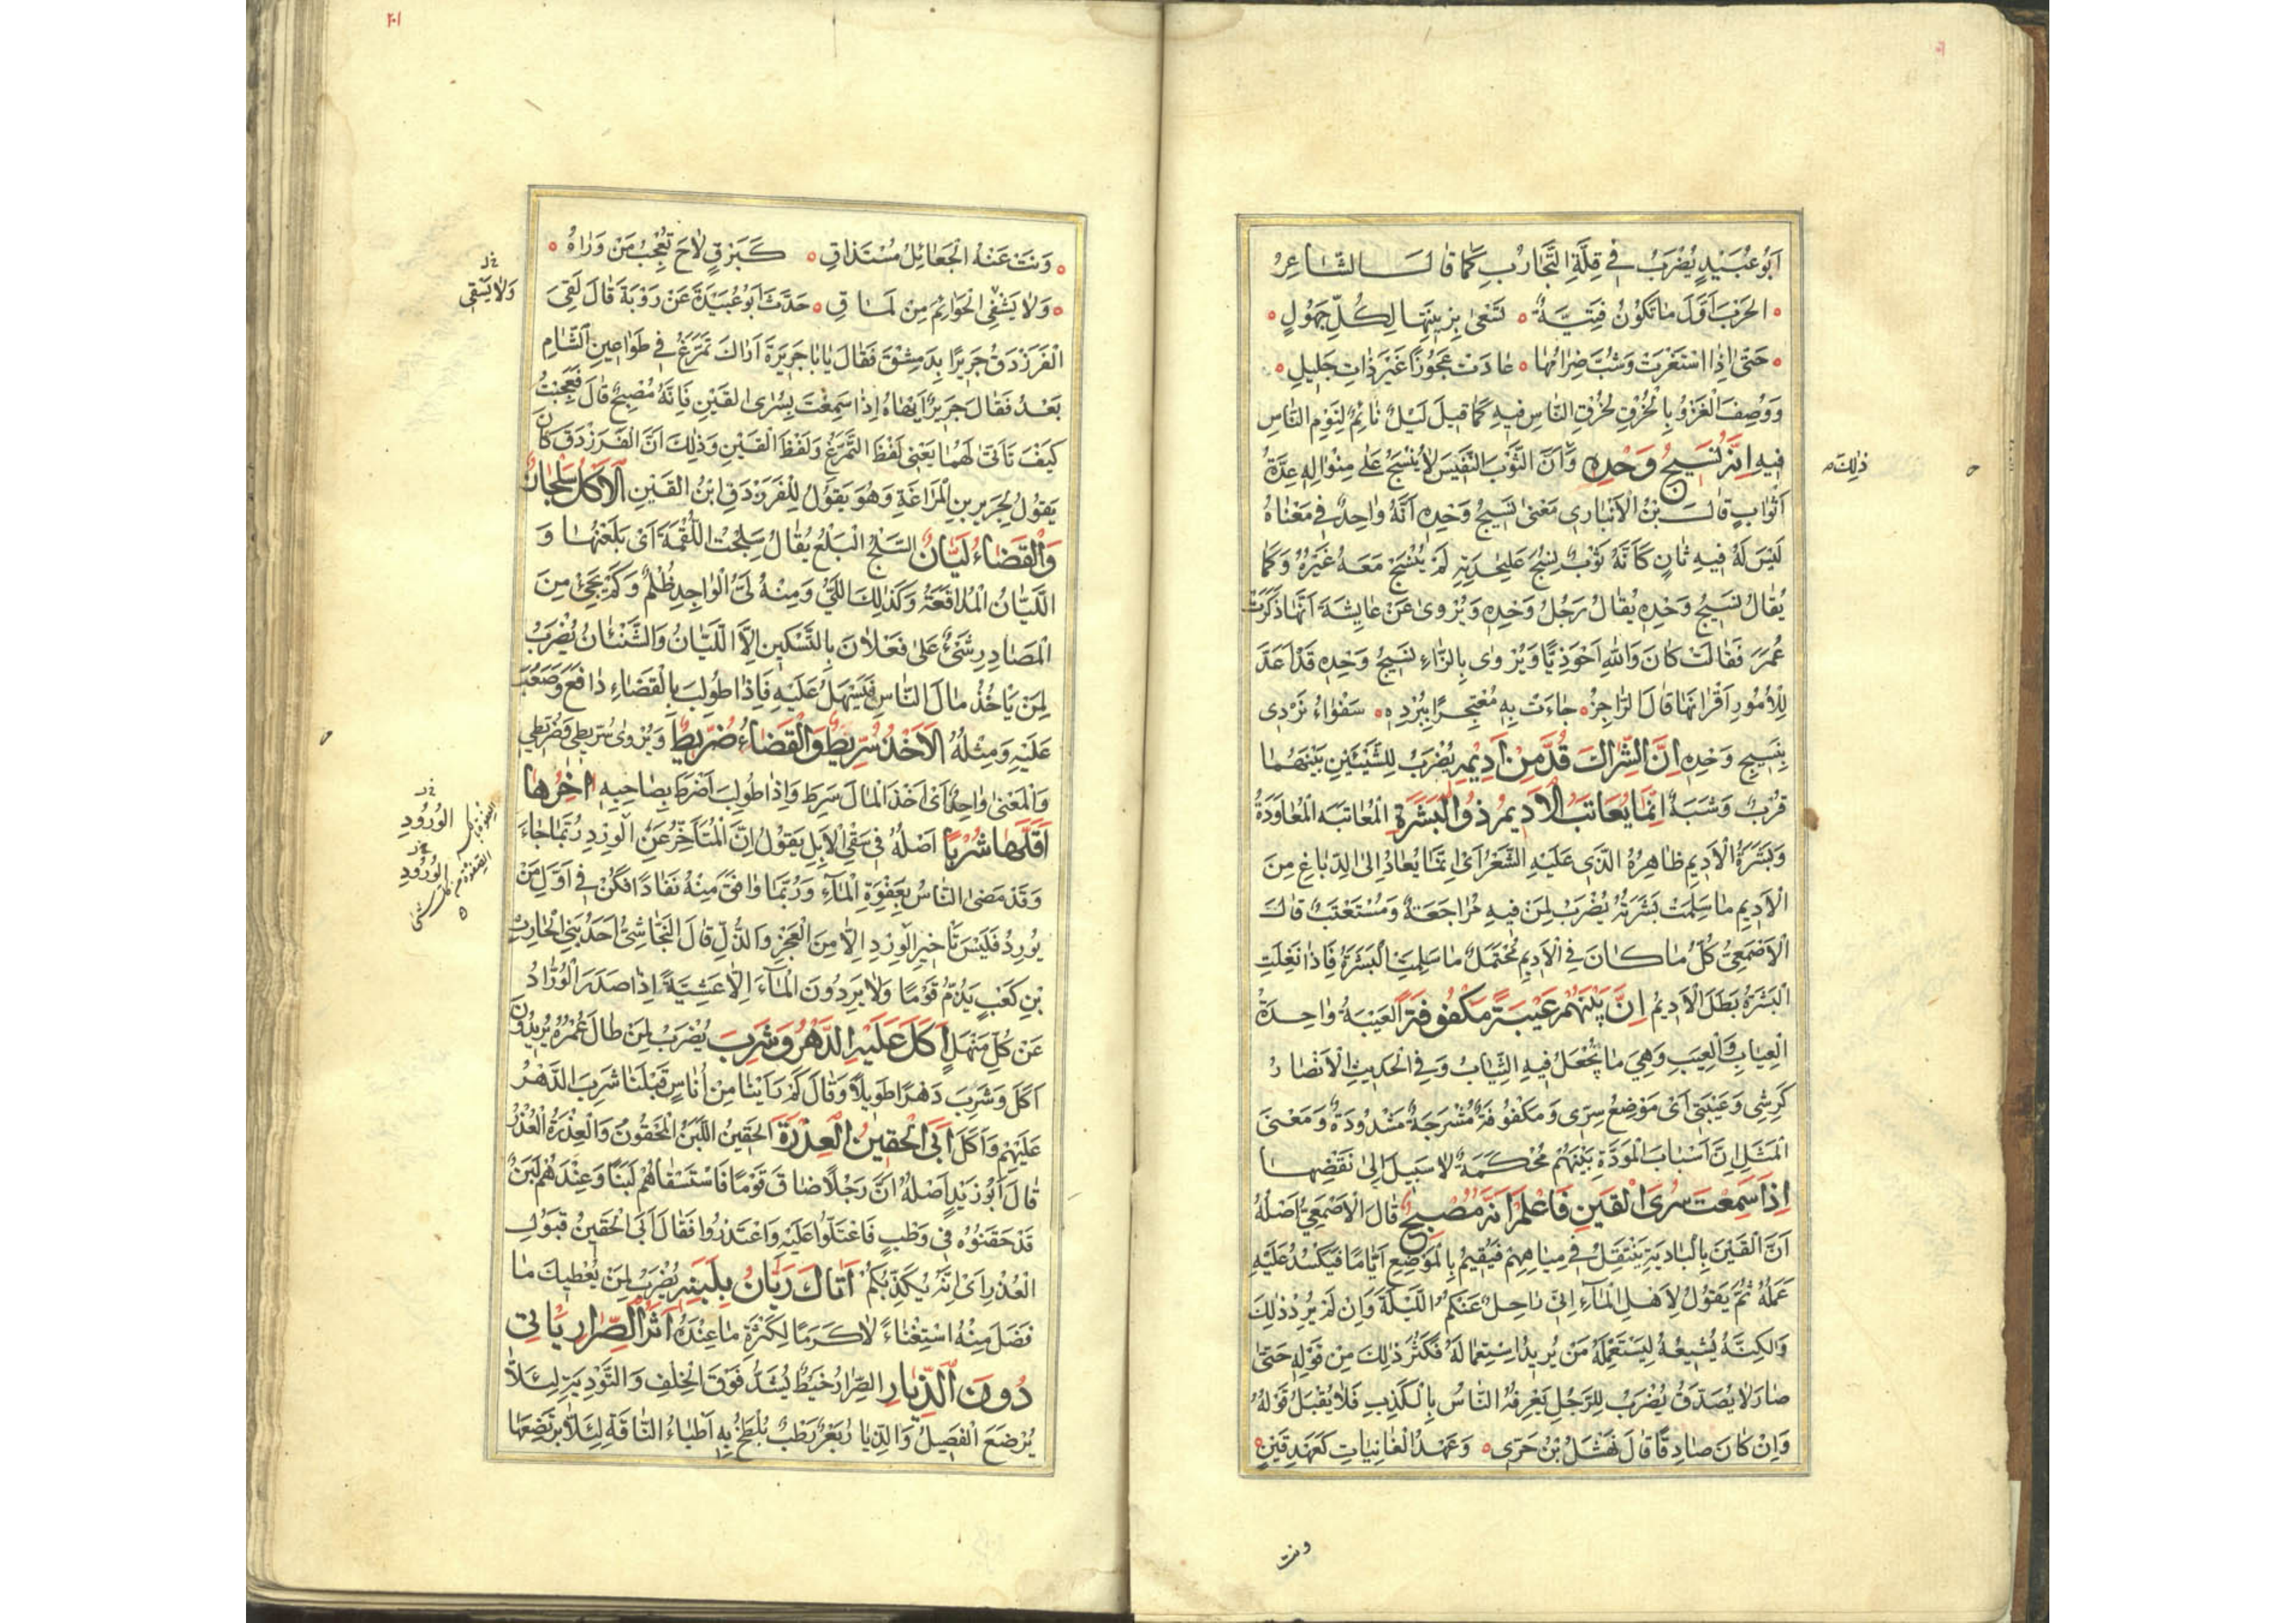 ابو عبيد يضرب في قلة التجارب كما قال الشاعر
الحرب اول ما تكون فتية تسعى بزينتها لكل جهول
حتى اذا استعرت وشب ضرامها عادت عجوزا غير ذات حليل
ووصف الغزو بالخرق لخرق الناس فيه كما قيل ليل نائم لنوم الناس
فيه انه نسيج وحده وان الثوب النفيس لا ينسج على منواله عدة
ذلك
اثواب قال ابن الانباري معنى نسيج وحده انه واحد في معناه
ليس له فيه ثان كانه ثوب نسج على حدته لم ينسج معه غيره وكما
يقال نسيج وحده يقال رجل وحده ويروى عن عايشة انها ذكرت
عمر فقالت كان والله احوذيا ويروى بالزاء نسيج وحده قد اعد
للامور اقرانها قال الراجز جاءت به معتجرا ببرده سفواء تردى
بنسيج وحده ان الشراك قد من اديمه يضرب للشيئين بينهما
قرب وشبه انما يعاتب الاديم ذو البشرة المعاتبه المعاودة
وبشرة الاديم ظاهره الذي عليه الشعر اى انما يعاد الى الدباغ من
الاديم ما سلمت بشرته يضرب لمن فيه مراجعة ومستعتب قال
الاصمعي كل ما كان في الاديم محتمل ما سلمت البشرة فاذا نغلت
البشرة بطل الاديم ان بينهم عيبة مكفوفة العيبة واحدة
العياب والعيب وهي ما يجعل فيه الثياب وفي الحديث الانصار
كرشى وعيبتى اى موضع سرى ومكفوفة مشرجة مشدودة ومعنى
المثل ان اسباب المودة بينهم محكمة لا سبيل الى نقضها
اذا سمعت بسرى القين فاعلم انه مصبح قال الاصمعي اصله
ان القين بالبادية ينتقل في مياههم فيقيم بالموضع اياما فيكسد عليه
عمله ثم يقول لاهل الماء انى راحل عنكم الليلة وان لم يرد ذلك
ولكنه يشيعه ليستعمله من يريد استعماله فكثر ذلك من قوله حتى
صار لا يصدق يضرب للرجل يعرفه الناس بالكذب فلا يقبل قوله
وان كان صادقا قال نهشل بن حرى وعهد الغانيات كعهد قين
ونت
ونت عنه الجعائل مستذاق كبرق لاح تعجب من وراه
ولا يشفى الحوائم من لماق حدث ابو عبيدة عن روبة قال لقى
ولا يسقى
الفرزدق جريرا بدمشق فقال يا با جريرة اراك تمرغ في طواعين الشام
بعد فقال جرير ايهاه اذا سمعت بسرى القين فانه مصبح قال فعجبت
كيف تاتى لهما يعنى لفظ التمرغ ولفظ القين وذلك ان الفرزدق كان
يقول لجرير بن المراغة وهو يقول للفرزدق ابن القين الاكل سلجان
والقضاء ليان السلج البلع يقال سلجت اللقمة اى بلعتها و
الليان المدافعة وكذلك اللي ومنه لي الواجد ظلم ولم يجئ من
المصادر شئ على فعلان بالتسكين الا الليان والشنئان يضرب
لمن ياخذ مال الناس فيسهل عليه فاذا طولب بالقضاء دافع وصعب
عليه ومثله الاخذ سريط والقضاء ضريط ويروى سريطى وضريطى
والمعنى واحد اى اخذ المال سرط واذا طولب اضرط بصاحبه اخرها
اقلها شربا اصله في سقى الابل يقول ان المتاخر عن الورد ربما جاء
الورود
الورود
وقد مضى الناس بعفوة الماء وربما وافق منه نفادا فكن في اول من
يورد فليس تاخير الورد الا من العجز والذل قال النجاشى احد بنى الحارث
بن كعب يذم قوما ولا يردون الماء الا عشية اذا صدر الوراد
عن كل منهل اكل عليه الدهر وشرب يضرب لمن طال عمره يريدون
اكل وشرب دهرا طويلا وقال كم راينا من اناس قبلنا شرب الدهر
عليهم واكل ابى الحقين العذرة الحقين اللبن المحقون والعذرة العذر
قال ابو زيد اصله ان رجلا ضاف قوما فاستسقاهم لبنا وعندهم لبن
قد حقنوه في وطب فاعتلوا عليه واعتذروا فقال ابى الحقين قبول
العذر اى انه يكذبكم اتاك ريان بلبنه يضرب لمن يعطيك ما
فضل منه استغناء لا كرما لكثرة ما عنده اثر الصرار ياتى
دون الذيار الصرار خيط يشد فوق الخلف والتودية لئلا
يرضع الفصيل والذيار بعر رطب يلطخ به اطباء الناقة لئلا يرتضعها